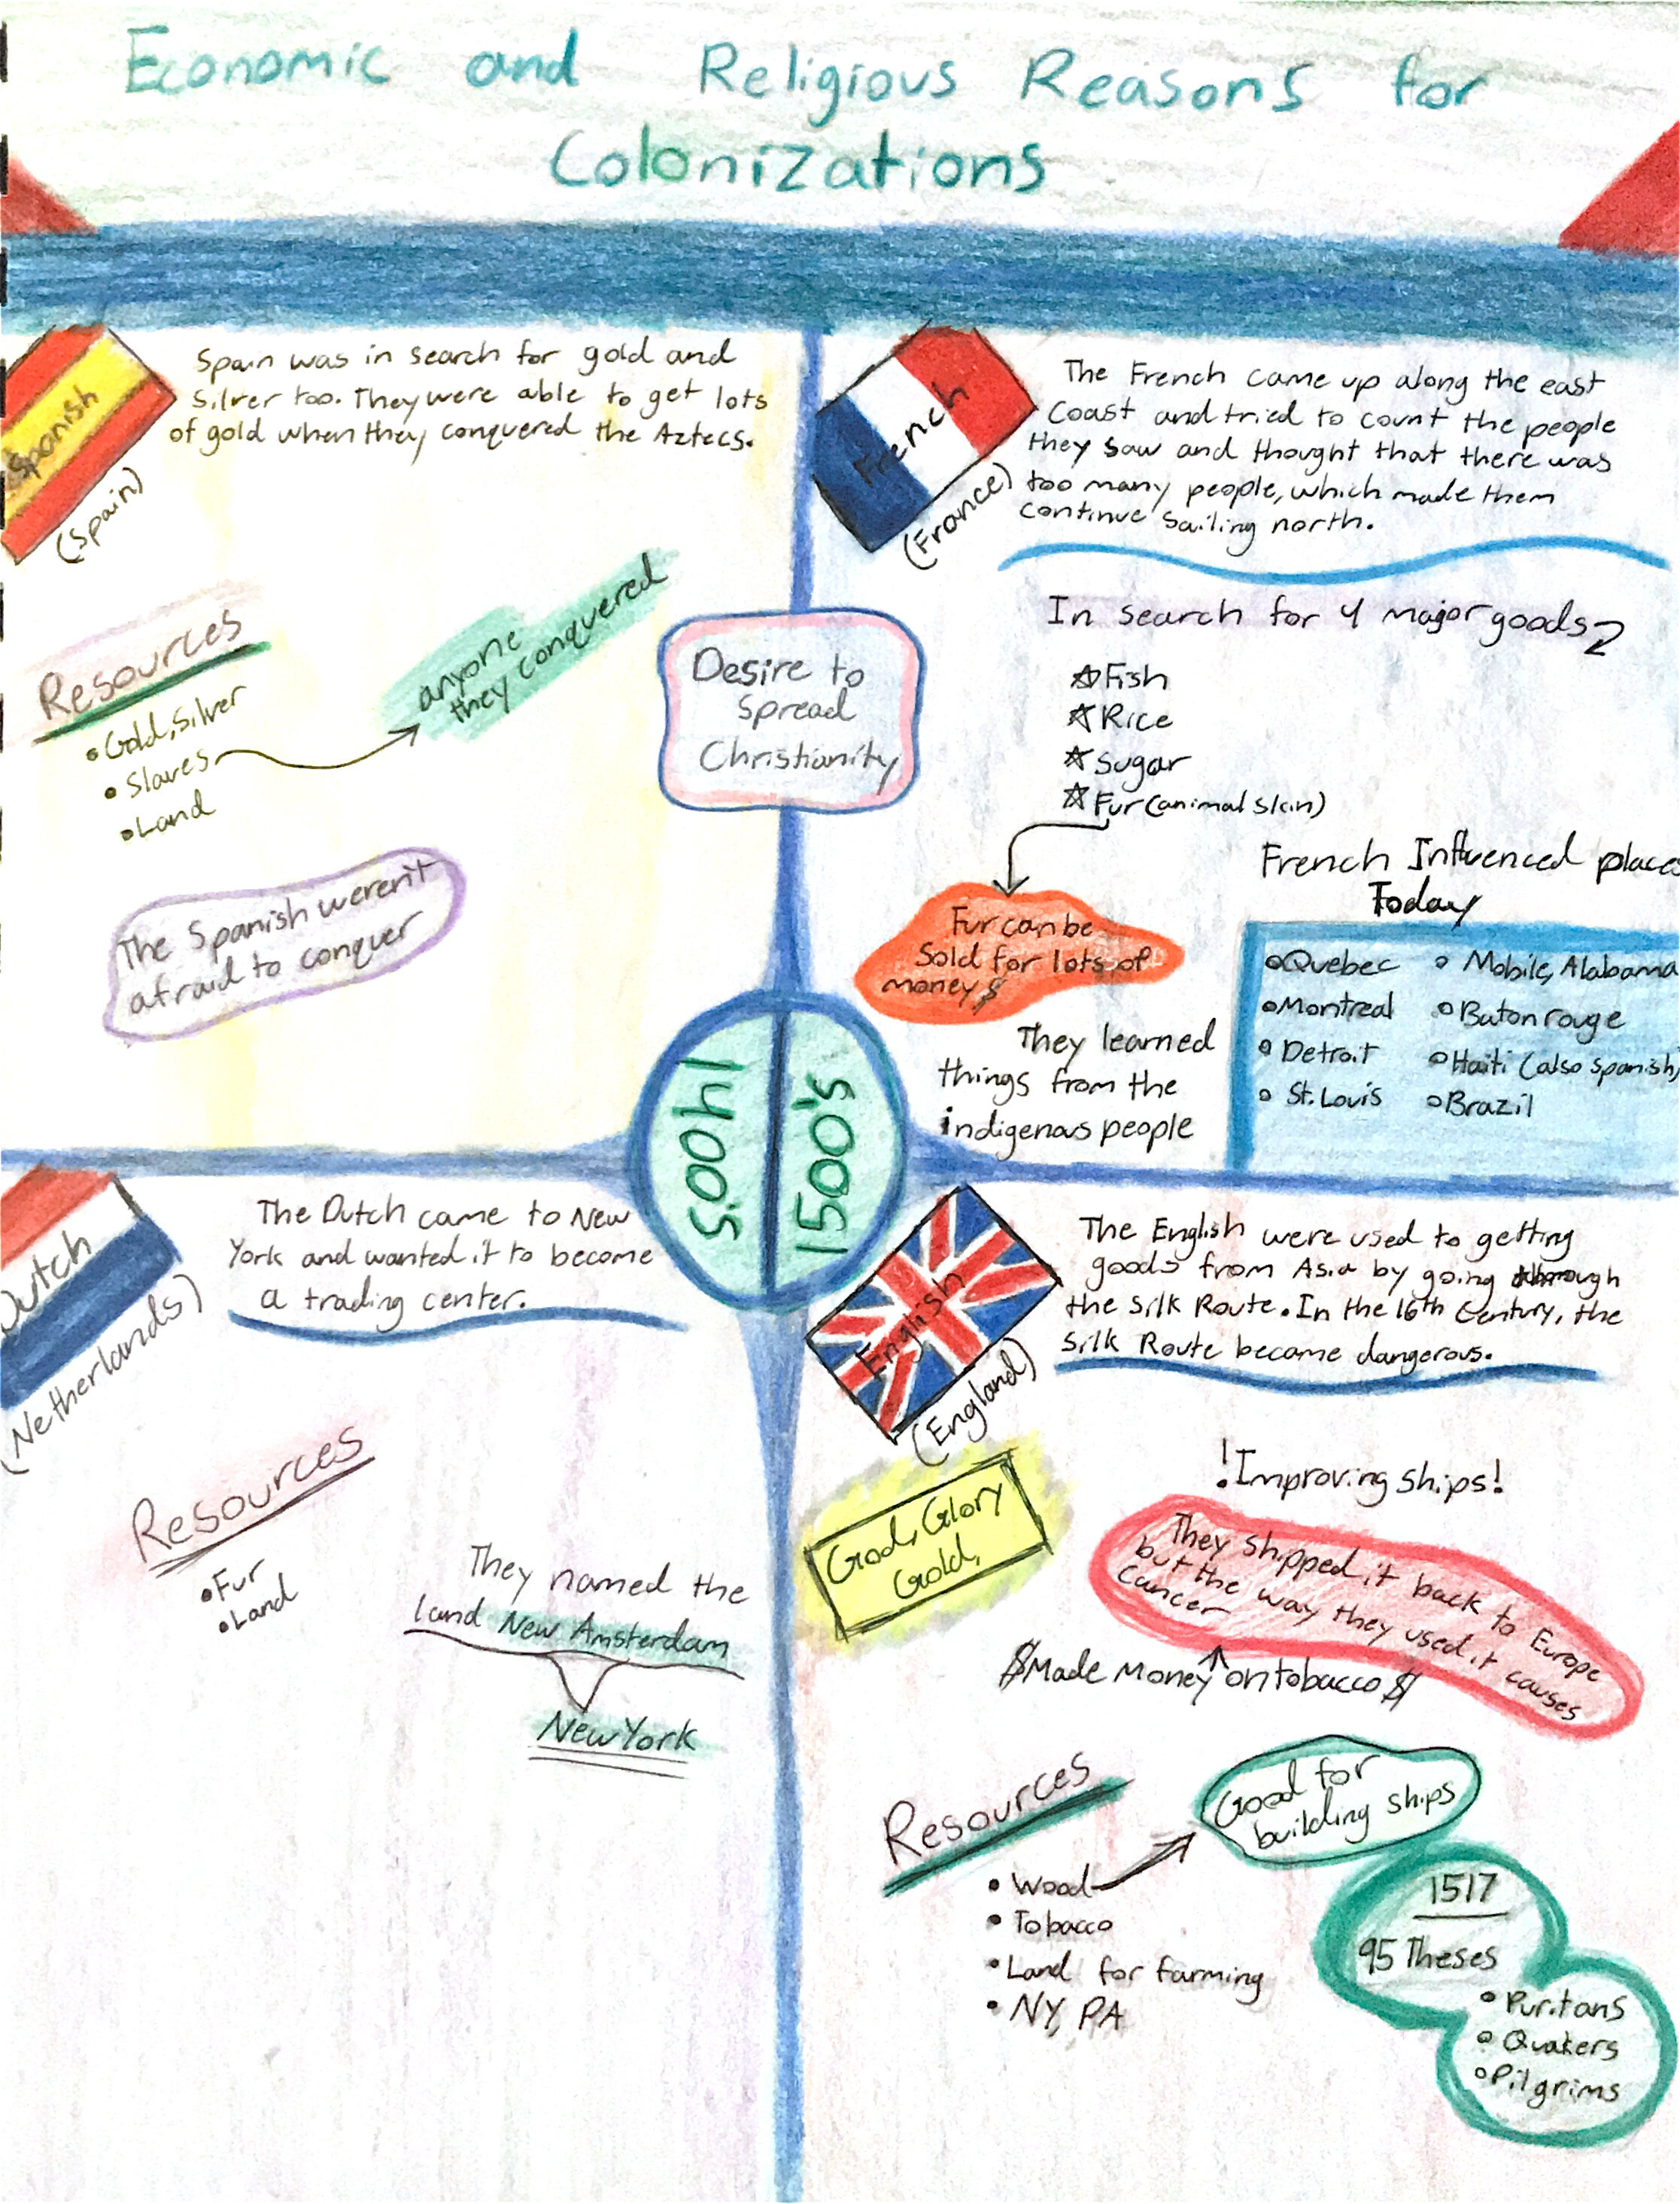 Economic and Religious Reasons for
Colonizations
Spanish
(Spain)
Spain was in search for gold and
Silver too. They were able to get lots
of gold when they conquered the Aztecs.
Resources
•Gold, Silver
•Slaves
•Land
anyone
they conquered
The Spanish weren't
afraid to conquer
Desire to
Spread
Christianity
French
(France)
The French came up along the east
Coast and tried to count the people
they saw and thought that there was
too many people, which made them
continue sailing north.
In search for 4 major goods
☆Fish
☆Rice
☆Sugar
☆Fur (animal skin)
Fur can be
Sold for lots of
money $
They learned
things from the
indigenous people
French Influenced places
Today
•Quebec
•Montreal
•Detroit
•St. Louis
•Mobile, Alabama
•Baton rouge
•Haiti (also Spanish)
•Brazil
1400's
1500's
Dutch
(Netherlands)
The Dutch came to New
York and wanted it to become
a trading center.
Resources
•Fur
•Land
They named the
land New Amsterdam
New York
English
(England)
The English were used to getting
goods from Asia by going through
the Silk Route. In the 16th Century, the
Silk Route became dangerous.
God, Glory
Gold,
!Improving ships!
They shipped it back to Europe
but the way they used it causes
Cancer
$Made Money on tobacco$
Resources
•Wood
•Tobacco
•Land for farming
•NY, PA
Good for
building ships
1517
95 Theses
•Puritans
•Quakers
•Pilgrims